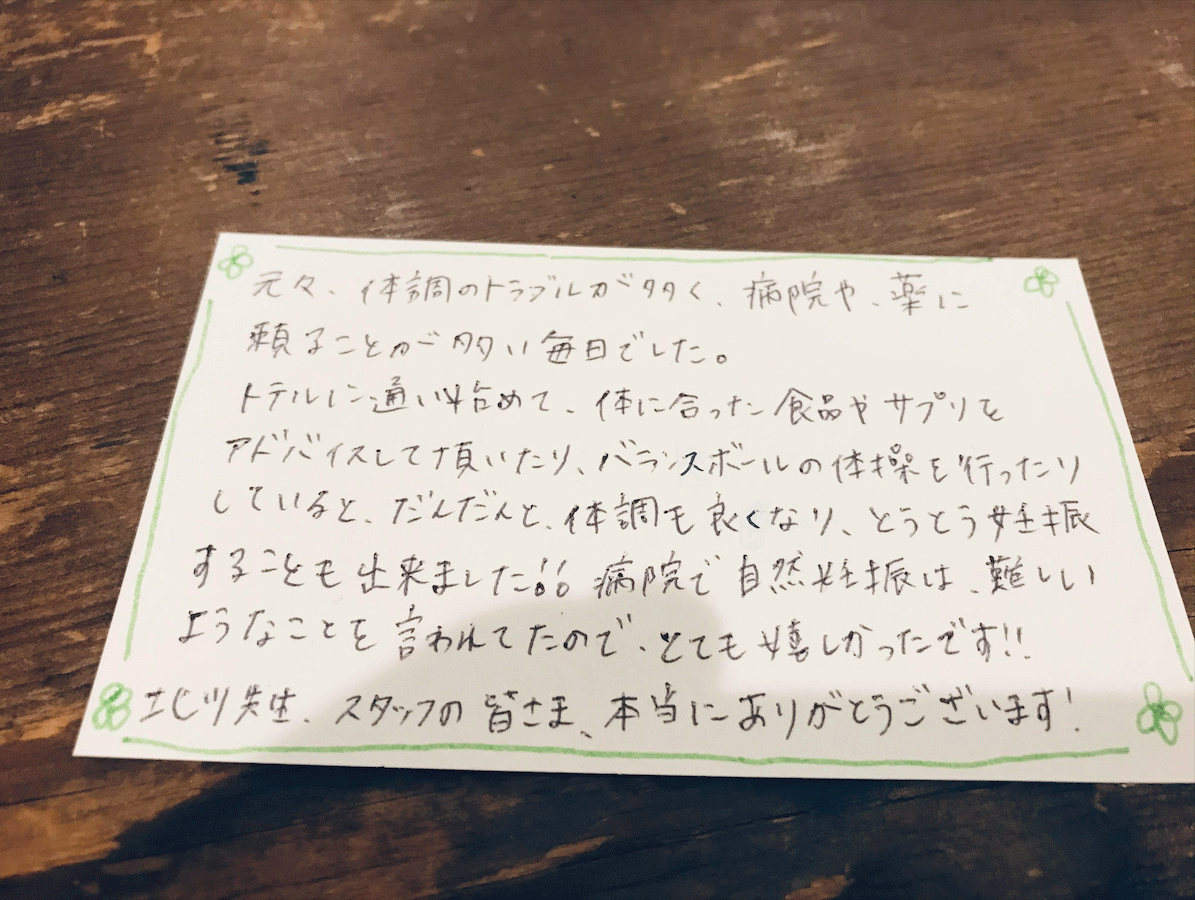 元々、体調のトラブルが多く、病院や、薬に
頼ることが多い毎日でした。
トテルに通い始めて、体に合った食品やサプリを
アドバイスして頂いたり、バランスボールの体操を行ったり
していると、だんだんと、体調も良くなり、とうとう妊娠
することも出来ました!! 病院で自然妊娠は、難しい
ようなことを言われてたので、とても嬉しかったです!!
先生、スタッフの皆さま、本当にありがとうございます!